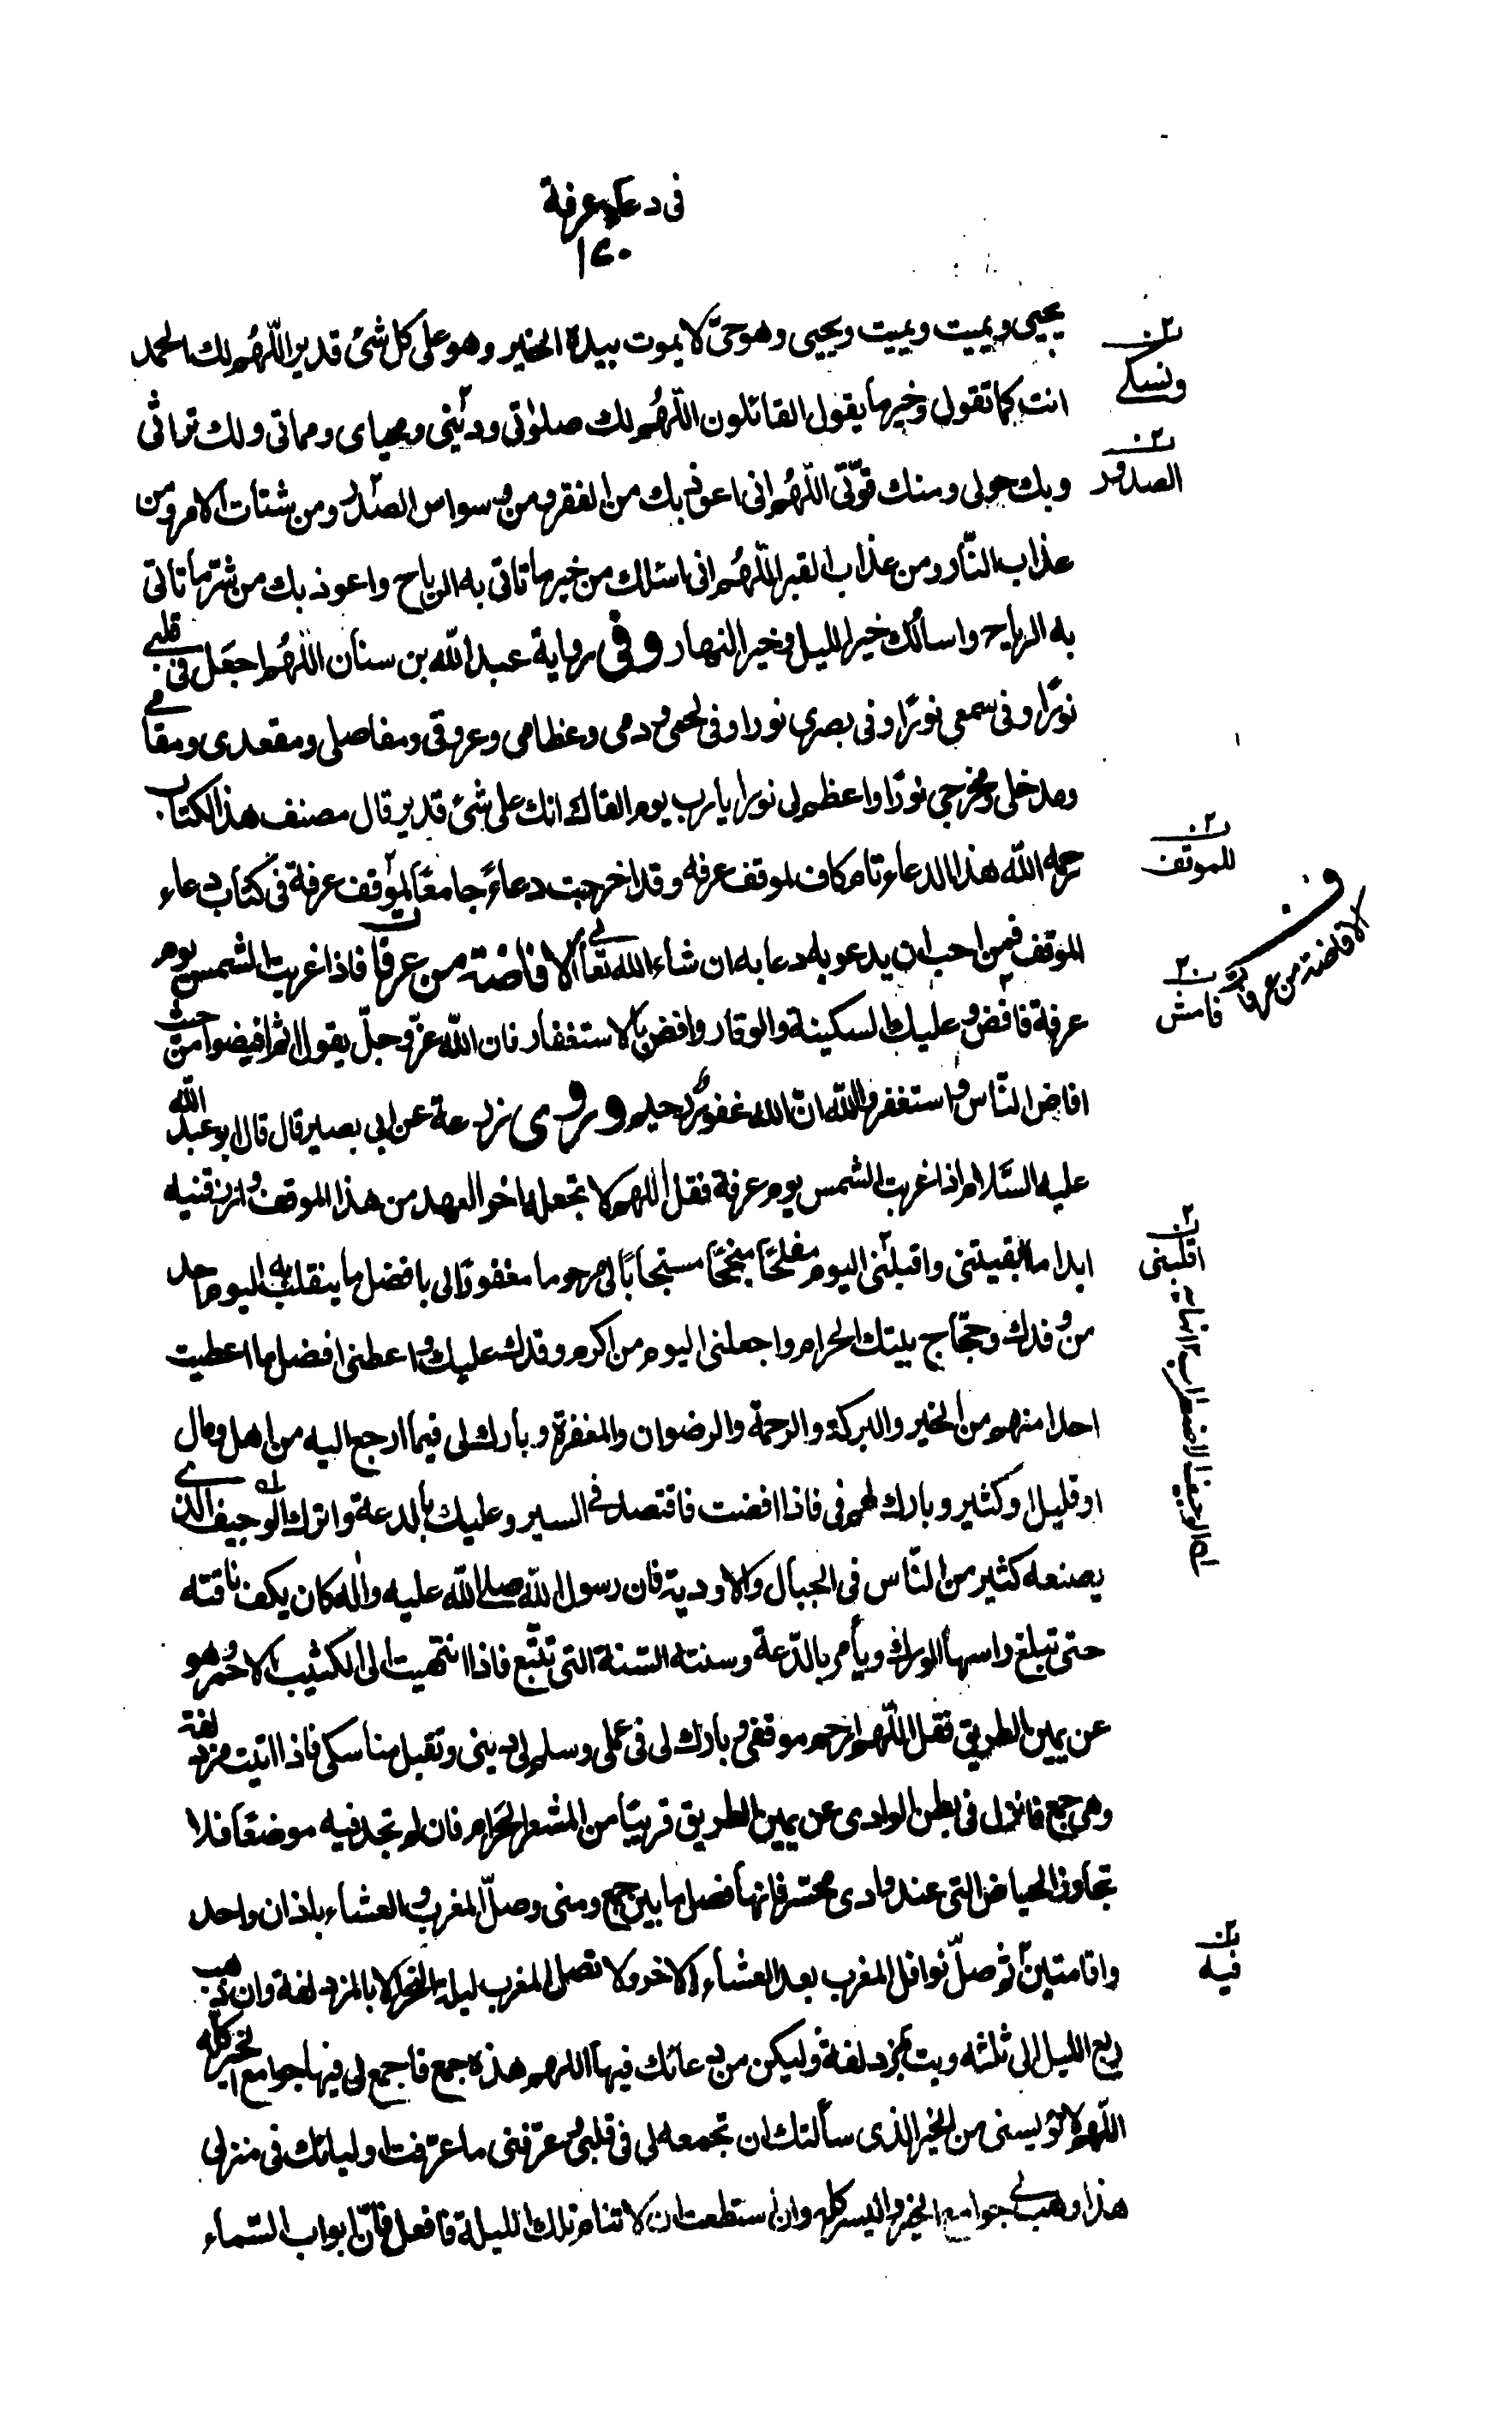 فى دعاء عرفة
١٤٠
يحيى ويميت ويميت ويحيى وهو حىّ لا يموت بيده الخير وهو على كل شئ قدير اللّهم لك الحمد
انت كما تقول وخير ما يقول القائلون اللّهم لك صلوتى ودينى ومحياى ومماتى ولك تراثى
وبك حولى ومنك قوّتى اللّهم انى اعوذ بك من الفقر ومن وسواس الصدر ومن شتات الامر ومن
عذاب النّار ومن عذاب القبر اللّهم انى اسئلك من خير ما تاتى به الرياح واعوذ بك من شرّ ما تاتى
به الرياح واسألك خير الليل وخير النهار وفى رواية عبد الله بن سنان اللّهم اجعل فى قلبى
نورًا وفى سمعى نورًا وفى بصرى نورا وفى لحمى ودمى وعظامى وعروقى ومفاصلى ومقعدى ومقامى
ومدخلى ومخرجى نورًا واعظم لى نورا يا رب يوم القاك انك على شئ قدير قال مصنف هذا الكتاب
رحمه الله هذا الدعاء تام كاف لموقف عرفه وقد اخرجت دعاءً جامعًا لموقف عرفة فى كتاب دعاء
الموقف فمن احب ان يدعو به دعا به ان شاء الله تعالى الافاضة من عرفات فاذا غربت الشمس يوم
عرفة فافض وعليك السكينة والوقار وافض بالاستغفار فان الله عزّ وجلّ يقول ثم افيضوا من حيث
افاض النّاس واستغفروا الله انّ الله غفور رحيم وروى زرعة عن ابى بصير قال قال ابو عبد الله
عليه السّلام اذا غربت الشمس يوم عرفة فقل اللهم لا تجعله اخر العهد من هذا الموقف وارزقنيه
ابدا ما ابقيتنى واقبلنى اليوم مفلحًا منجحًا مستجابًا لى مرحوما مغفورًا لى بافضل ما ينقلب به اليوم احد
من وفدك وحجّاج بيتك الحرام واجعلنى اليوم من اكرم وفدك عليك واعطنى افضل ما اعطيت
احدا منهم من الخير والبركة والرحمة والرضوان والمغفرة وبارك لى فيما ارجع اليه من اهل ومال
او قليل او كثير وبارك لهم فى فاذا افضت فاقتصد فى السير وعليك بالدعة واترك الوجيف الذى
يصنعه كثير من النّاس فى الجبال والاودية فان رسول الله صلى الله عليه واله كان يكف ناقته
حتى تبلغ راسها الورك ويأمر بالدّعة وسنته السّنة التى تتّبع فاذا انتهيت الى الكثيب الاحمر وهو
عن يمين الطريق فقل اللّهم ارحم موقفى وبارك لى فى عملى وسلم لى دينى وتقبل مناسكى فاذا اتيت مزدلفة
وهى جمع فانزل فى بطن الوادى عن يمين الطريق قريبًا من المشعر الحرام فان لم تجد فيه موضعًا فلا
تجاوز الحياض التى عند وادى محسّر فانها فصل ما بين جمع ومنى وصلّ المغرب والعشاء باذان واحد
واقامتين ثم صلّ نوافل المغرب بعد العشاء الاخر ولا تصل المغرب ليلة النحر الا بالمزدلفة وان ذهب
ربع الليل الى ثلثه وبت بمزدلفة وليكن من دعائك فيها اللهم هذه جمع فاجمع لى فيها جوامع الخير كله
اللّهم لا تؤيسنى من الخير الذى سألتك ان تجمعه لى فى قلبى وعرّفنى ما عرّفت اوليائك فى منزلى
هذا وهب لى جوامع الخير واليسر كله وان استطعت ان لا تنام تلك الليلة فافعل فانّ ابواب السّماء
ونسكى
الصدور
للموقف
الافاضة من عرفات
فامش
اقلبنى
فيه